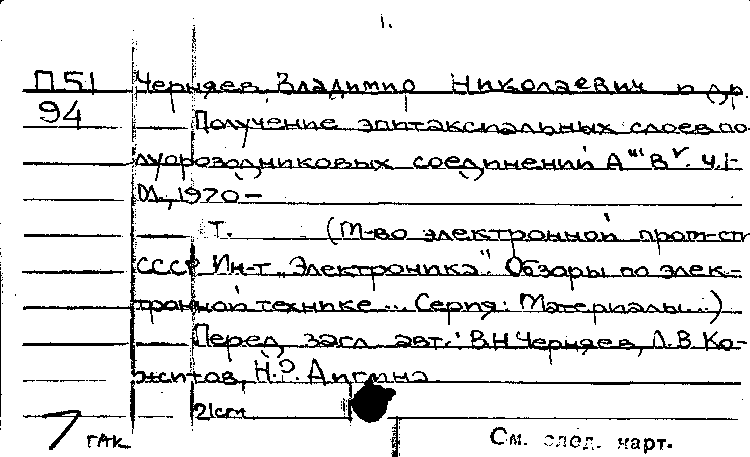 1.
П51 Черняев, Владимир Николаевич и др.
94 Получение эпитаксиальных слоев по-
лупроводниковых соединений AIII BV. Ч.1-
М., 1970 –
Т. (М-во электронной пром-сти
СССР Ин-т "Электроника". Обзоры по элек-
тронной технике... Серия: Материалы...)
Перед загл. авт.: В.Н.Черняев, Л.В.Ко-
житов,
21см
ГАК См. след. карт.